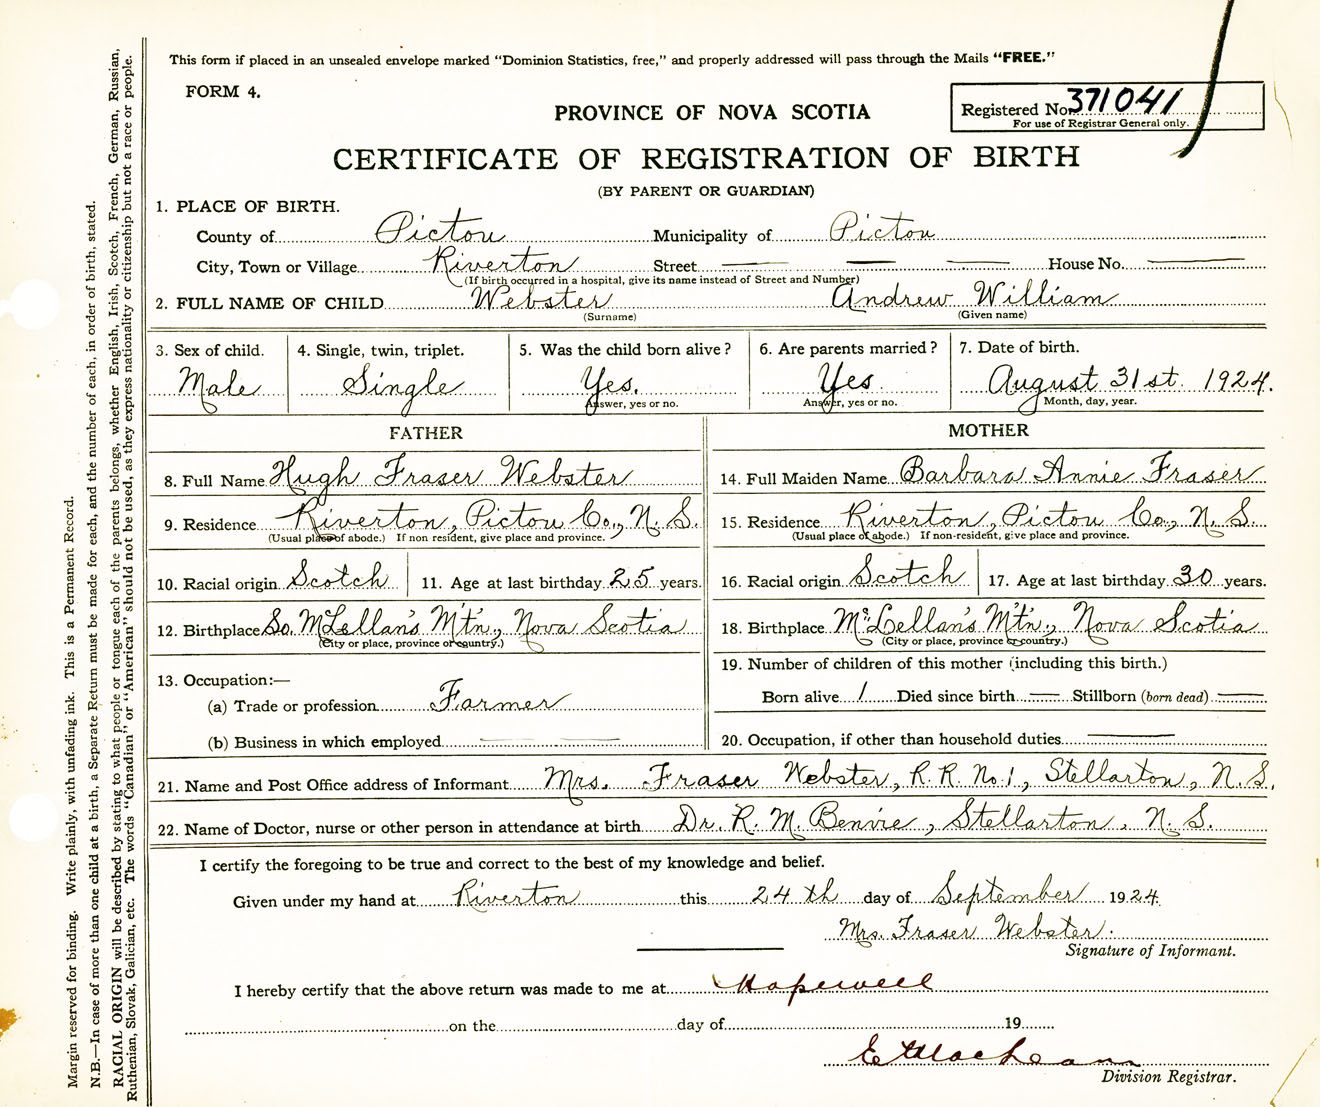 This form if placed in an unsealed envelope marked "Dominion Statistics, free," and properly addressed will pass through the Mails "FREE."
FORM 4.
Registered No. 371041
For use of Registrar General only.
PROVINCE OF NOVA SCOTIA
CERTIFICATE OF REGISTRATION OF BIRTH
(BY PARENT OR GUARDIAN)
1. PLACE OF BIRTH.
County of Pictou Municipality of Pictou
City, Town or Village Riverton Street — — — House No. —
(If birth occurred in a hospital, give its name instead of Street and Number)
2. FULL NAME OF CHILD Webster Andrew William
(Surname) (Given name)
3. Sex of child. 4. Single, twin, triplet. 5. Was the child born alive? 6. Are parents married? 7. Date of birth.
Male Single Yes. Yes August 31st. 1924.
Answer, yes or no. Answer, yes or no. Month, day, year.
FATHER
8. Full Name Hugh Fraser Webster
9. Residence Riverton, Pictou Co., N. S.
(Usual place of abode.) If non resident, give place and province.
10. Racial origin Scotch 11. Age at last birthday 25 years.
12. Birthplace So. McLellan's Mt'n., Nova Scotia
(City or place, province or country.)
13. Occupation:—
(a) Trade or profession Farmer
(b) Business in which employed — —
MOTHER
14. Full Maiden Name Barbara Annie Fraser
15. Residence Riverton, Pictou Co., N. S.
(Usual place of abode.) If non-resident, give place and province.
16. Racial origin Scotch 17. Age at last birthday 30 years.
18. Birthplace Mc.Lellan's Mt'n., Nova Scotia
(City or place, province or country.)
19. Number of children of this mother (including this birth.)
Born alive 1 Died since birth — Stillborn (born dead) —
20. Occupation, if other than household duties —
21. Name and Post Office address of Informant Mrs. Fraser Webster, R. R. No. 1, Stellarton, N. S.
22. Name of Doctor, nurse or other person in attendance at birth Dr. R. M. Benvie, Stellarton, N. S.
I certify the foregoing to be true and correct to the best of my knowledge and belief.
Given under my hand at Riverton this 24th day of September 1924.
Mrs. Fraser Webster.
Signature of Informant.
I hereby certify that the above return was made to me at Hopewell
on the day of 19
Division Registrar.
Margin reserved for binding. Write plainly, with unfading ink. This is a Permanent Record.
N.B.—In case of more than one child at a birth, a Separate Return must be made for each, and the number of each, in order of birth, stated.
RACIAL ORIGIN will be described by stating to what people or tongue each of the parents belongs, whether English, Irish, Scotch, French, German, Russian,
Ruthenian, Slovak, Galician, etc. The words "Canadian" or "American" should not be used, as they express nationality or citizenship but not a race or people.